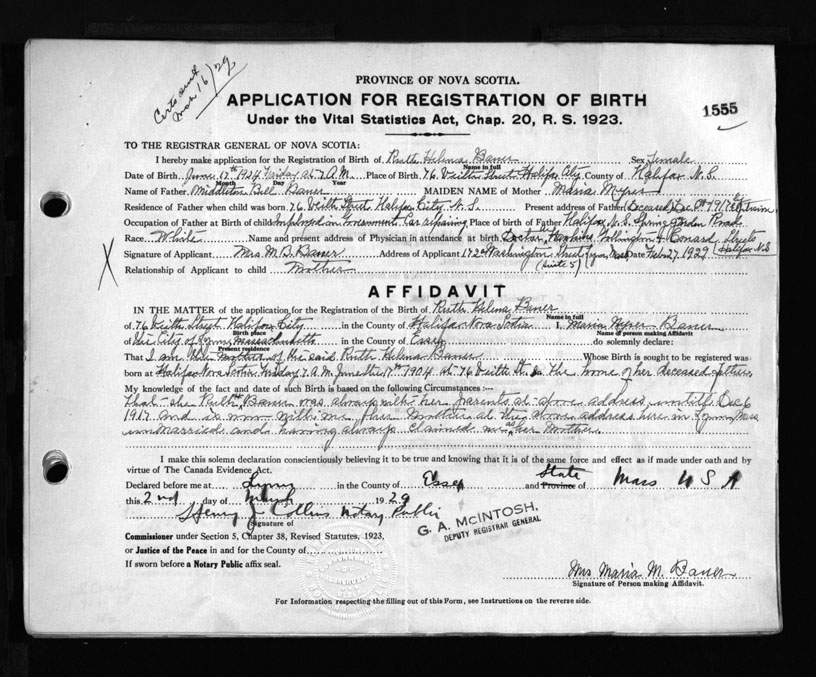 Certs sent
Mar 16/29
PROVINCE OF NOVA SCOTIA.
APPLICATION FOR REGISTRATION OF BIRTH
1555
Under the Vital Statistics Act, Chap. 20, R. S. 1923.
TO THE REGISTRAR GENERAL OF NOVA SCOTIA:
I hereby make application for the Registration of Birth of Ruth Helena Bauer Sex Female
Name in full
Date of Birth June 17th Friday at 7 A.M. Place of Birth 76 Veith Street Halifax City County of Halifax N.S.
Month Day Year
Name of Father Middleton Bell Bauer MAIDEN NAME of Mother Maria Myser
Residence of Father when child was born 76 Veith Street Halifax City N.S. Present address of Father (Deceased) Dec 6th 1917
Occupation of Father at Birth of child Employed in Government Car repairing Place of birth of Father Halifax N.S. Spring Garden Road
Race White Name and present address of Physician in attendance at birth Doctor Gottingen & Conard Streets Halifax N.S.
Signature of Applicant Mrs M B Bauer Address of Applicant 172 Washington Street Lynn Mass Date Feb 27 1929
(Suite 5)
Relationship of Applicant to child Mother
AFFIDAVIT
IN THE MATTER of the application for registration of birth of Ruth Helena Bauer
Name in full
of 76 Veith Street Halifax City in the County of Halifax Nova Scotia I, Maria Myser Bauer
Birth place Name of person making Affidavit
of the City of Lynn Massachusetts in the County of Essex do solemnly declare:
Present residence
That I am the Mother of the said Ruth Helena Bauer Whose Birth is sought to be registered was
born at Halifax Nova Scotia Friday 7 A.M. June the 17th 1904 at 76 Veith St. the home of her deceased father
My knowledge of the fact and date of such Birth is based on the following Circumstances:—
That she Ruth Bauer was always with her parents at above address until Dec 6
1917 and is now with me her Mother at the above address here in Lynn Mass
unmarried and having always claimed me as her Mother.
I make this solemn declaration conscientiously believing it to be true and knowing that it is of the same force and effect as if made under oath and by
virtue of The Canada Evidence Act.
Declared before me at Lynn in the County of Essex and State Province of Mass U S A
this 2nd day of March 1929
Henry J Collins Notary Public
Signature of
G. A. McINTOSH,
DEPUTY REGISTRAR GENERAL
Commissioner under Section 5, Chapter 38, Revised Statutes, 1923,
or Justice of the Peace in and for the County of
If sworn before a Notary Public affix seal.
Mrs Maria M. Bauer
Signature of Person making Affidavit.
For Information respecting the filling out of this Form, see Instructions on the reverse side.